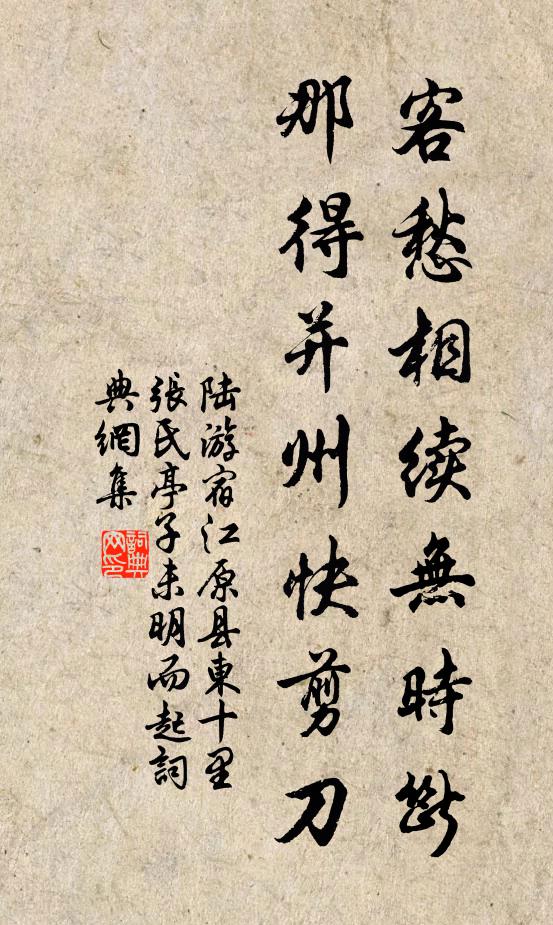 客愁相續無時斷
那得并州快剪刀
陆游宿江原县東十里
張氏亭子未明而起詞
典網集
詞典网印